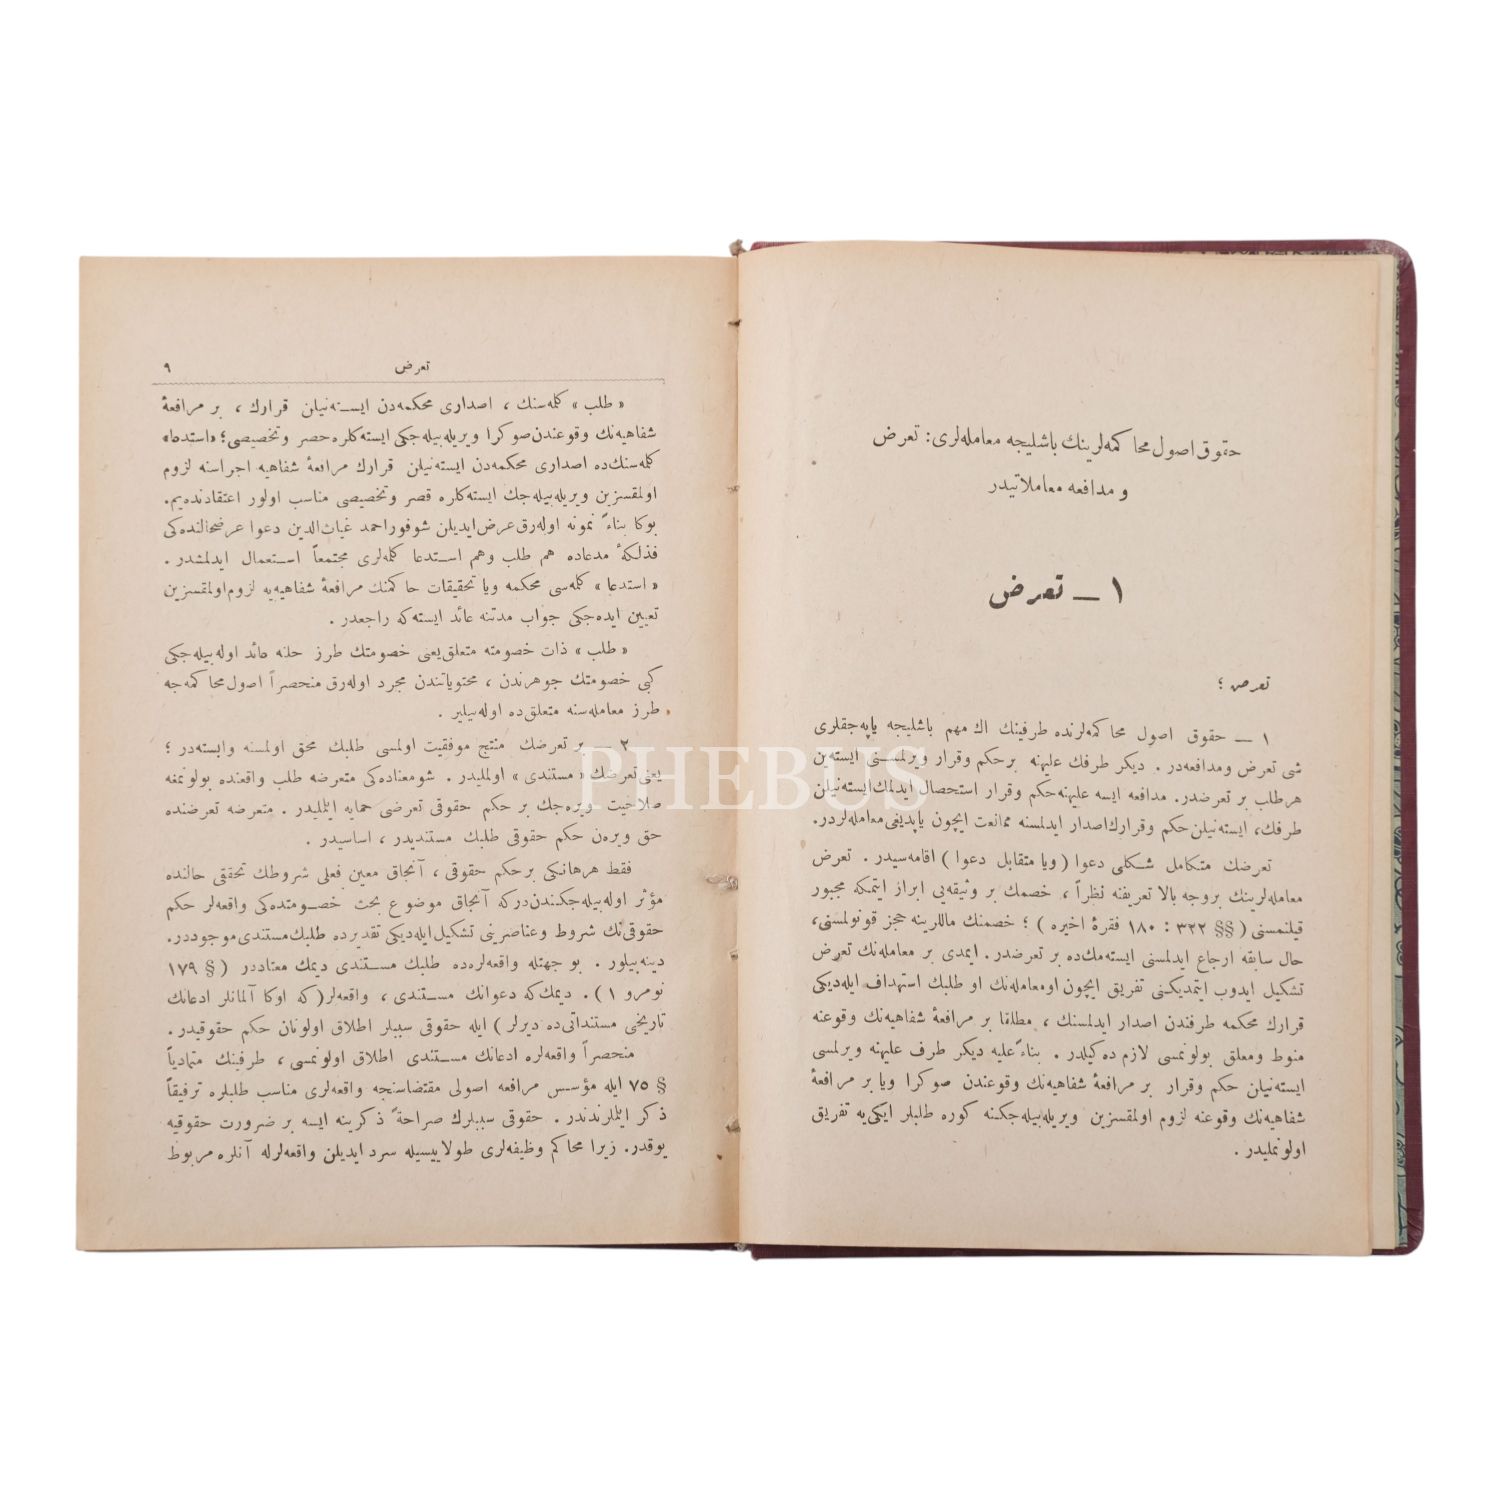 حقوق اصول محاكمه‌لرينك باشليجه معامله‌لرى: تعرض
و مدافعه معاملاتيدر
١ — تعرض
تعرض ؛
١ — حقوق اصول محاكمه‌لرنده طرفينك اك مهم باشليجه ياپه‌جقلرى
شى تعرض ومدافعه‌در . ديكر طرفك عليهنه برحكم وقرار ويرلمسنى ايسته‌ين
هرطلب بر تعرضدر. مدافعه ايسه عليهنه حكم وقرار استحصال ايدلمك ايسته‌نيلن
طرفك، ايسته‌نيلن حكم وقرارك اصدار ايدلمسنه ممانعت ايچون ياپديغى معامله‌لردر.
تعرضك متكامل شكلى دعوا ( ويا متقابل دعوا ) اقامه‌سيدر . تعرض
معامله‌لرينك بروجه بالا تعريفنه نظراً ، خصمك بر وثيقه‌يى ابراز ايتمكه مجبور
قيلنمسنى ( §§ ٣٢٢ : ١٨٠ فقرهٔ اخيره ) ؛ خصمنك ماللرينه حجز قونولمسنى،
حال سابقه ارجاع ايدلمسنى ايسته‌مك‌ده بر تعرضدر. ايمدى بر معامله‌نك تعرض
تشكيل ايدوب ايتمديكنى تفريق ايچون اومعامله‌نك او طلبك استهداف ايله‌ديكى
قرارك محكمه طرفندن اصدار ايدلمسنك ، مطلقا بر مرافعهٔ شفاهيه‌نك وقوعنه
منوط ومعلق بولونمسى لازم ده‌كيلدر . بناءً عليه ديكر طرف عليهنه ويرلمسى
ايسته‌نيلن حكم وقرار بر مرافعهٔ شفاهيه‌نك وقوعندن صوكرا ويا بر مرافعهٔ
شفاهيه‌نك وقوعنه لزوم اولمقسزين ويريله‌بيله‌جكنه كوره طلبلر ايكى‌يه تفريق
اولونمليدر .
تعرض ٩
« طلب » كلمه‌سنك ، اصدارى محكمه‌دن ايسته‌نيلن قرارك ، بر مرافعهٔ
شفاهيه‌نك وقوعندن صوكرا ويريله‌بيله‌جكى ايسته‌كلره حصر وتخصيصى؛ «استدعا»
كلمه‌سنك‌ده اصدارى محكمه‌دن ايسته‌نيلن قرارك مرافعهٔ شفاهيه اجراسنه لزوم
اولمقسزين ويريله‌بيله‌جك ايسته‌كلره قصر وتخصيصى مناسب اولور اعتقادنده‌يم.
بوكا بناءً نمونه اوله‌رق عرض ايديلن شوفور احمد غياث‌الدين دعوا عرضحالنده‌كى
فذلكهٔ مدعاده هم طلب وهم استدعا كلمه‌لرى مجتمعاً استعمال ايدلمشدر .
« استدعا » كلمه‌سى محكمه ويا تحقيقات حاكمنك مرافعهٔ شفاهيه‌يه لزوم اولمقسزين
تعيين ايده‌جكى جواب مدتنه عائد ايسته‌كه راجعدر .
« طلب » ذات خصومته متعلق يعنى خصومتك طرز حلنه عائد اوله‌بيله‌جكى
كبى خصومتك جوهرندن ، محتوياتندن مجرد اوله‌رق منحصراً اصول محاكمه‌جه
طرز معامله‌سنه متعلق‌ده اوله‌بيلير .
٢ — بر تعرضك منتج موفقيت اولمسى طلبك محق اولمسنه وابسته‌در ؛
يعنى تعرضك « مستندى » اولمليدر . شو معناده‌كى متعرضه طلب واقعنده بولونمغه
صلاحيت ويره‌جك بر حكم حقوقى تعرضى حمايه ايتمليدر . متعرضه تعرضنده
حق ويره‌ن حكم حقوقى طلبك مستنديدر ، اساسيدر .
فقط هرهانكى برحكم حقوقى ، آنجاق معين فعلى شروطك تحققى حالنده
مؤثر اوله‌بيله‌جكندن‌دركه آنجاق موضوع بحث خصومتده‌كى واقعه‌لر حكم
حقوقى‌نك شروط وعناصرينى تشكيل ايله‌ديكى تقديرده طلبك مستندى موجوددر.
دينه‌بيلور . بو جهتله واقعه‌لره‌ده طلبك مستندى ديمك معتاددر ( § ١٧٩
نومرو ١ ) . ديمك‌كه دعوانك مستندى ، واقعه‌لر ( كه اوكا آلمانلر ادعانك
تاريخى مستنداتى‌ده ديرلر ) ايله حقوقى سببلر اطلاق اولونان حكم حقوقيدر .
منحصراً واقعه‌لره ادعانك مستندى اطلاق اولونمسى ، طرفينك متمادياً
§ ٧٥ ايله مؤسس مرافعه اصولى مقتضاسنجه واقعه‌لرى مناسب طلبلره ترفيقاً
ذكر ايتملرندندر . حقوقى سببلرك صراحةً ذكرينه ايسه بر ضرورت حقوقيه
يوقدر. زيرا محاكم وظيفه‌لرى طولاييسيله سرد ايديلن واقعه‌لرله آنلره مربوط
PHEBUS